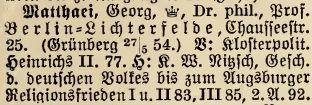 Matthaei, Georg, ♕, Dr. phil., Prof.
Berlin-Lichterfelde, Chausseestr.
25. (Grünberg 27/5 54.) V: Klosterpolit.
Heinrichs II. 77. H: K. W. Nitzsch, Gesch.
d. deutschen Volkes bis zum Augsburger
Religionsfrieden I u. II 83, III 85, 2. A. 92.